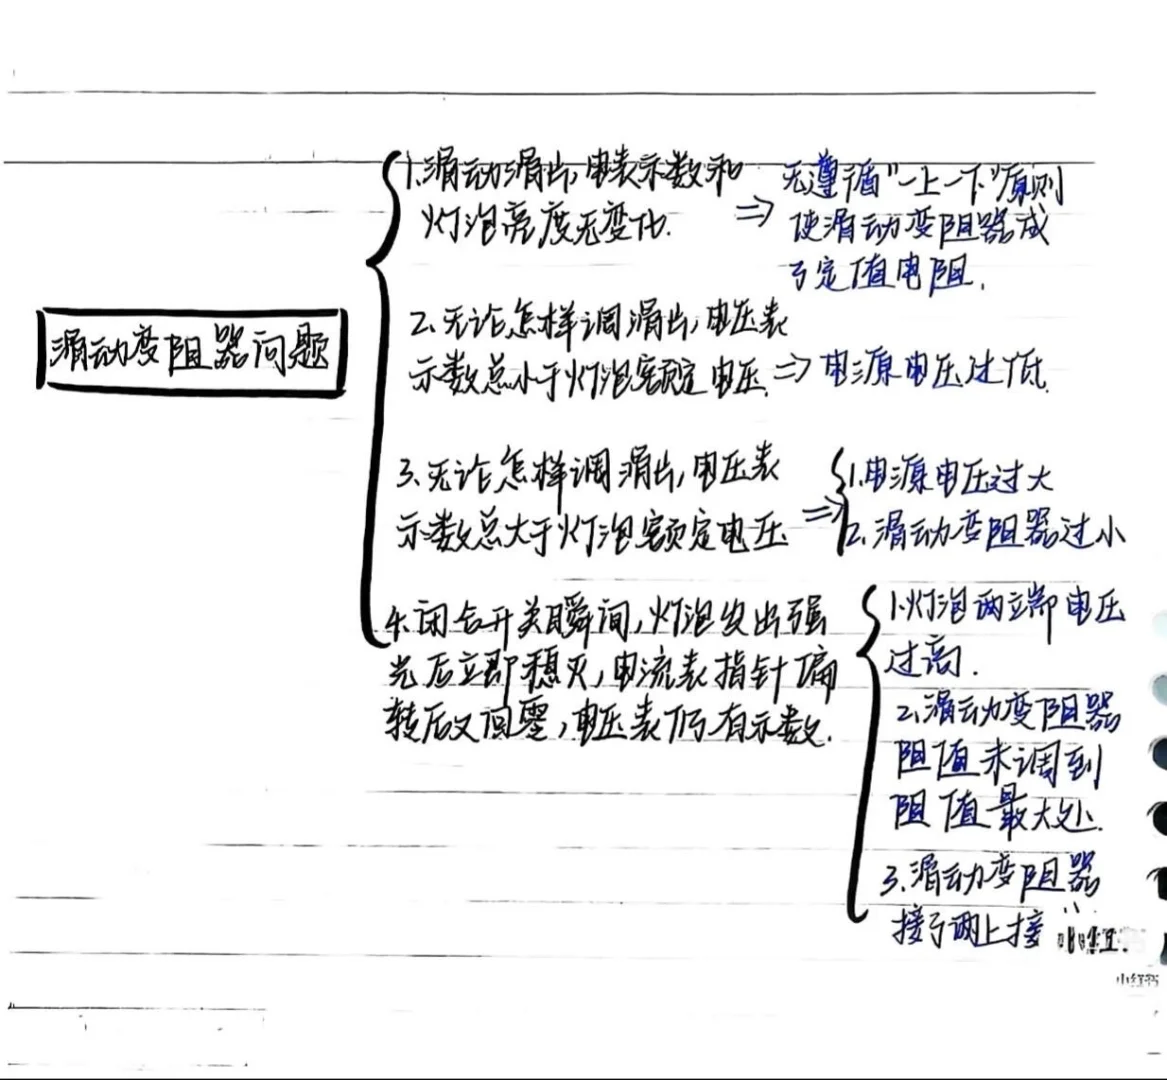 滑动变阻器问题
1.滑动滑片,电表示数和
灯泡亮度无变化.
⇒
无遵循"一上一下"原则
使滑动变阻器成
了定值电阻.
2.无论怎样调滑片,电压表
示数总小于灯泡额定电压.
⇒电源电压过低.
3.无论怎样调滑片,电压表
示数总大于灯泡额定电压
⇒
1.电源电压过大
2.滑动变阻器过小
4.闭合开关瞬间,灯泡发出强
光后立即熄灭,电流表指针偏
转后又回零,电压表仍有示数.
1.灯泡两立即电压
过高.
2.滑动变阻器
阻值未调到
阻值最大处.
3.滑动变阻器
接了两上接
小红书